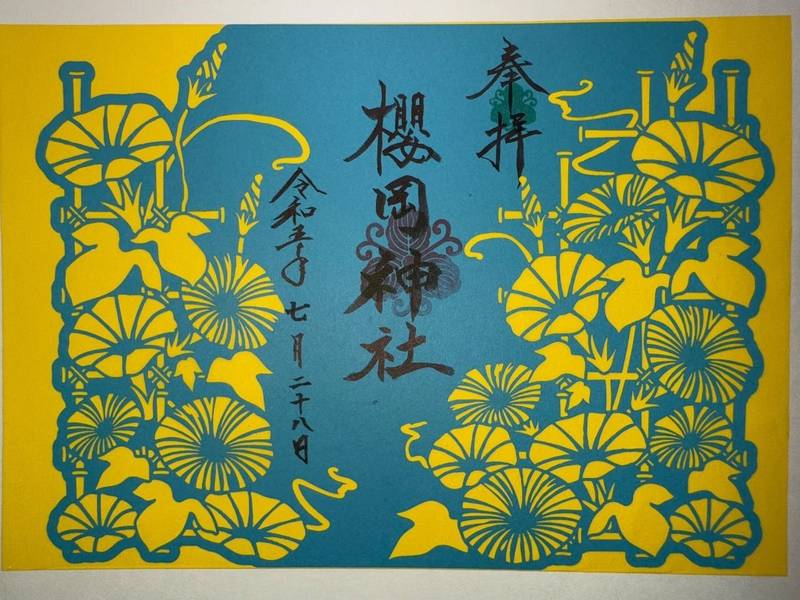 奉拝
櫻岡神社
令和五年七月二十八日